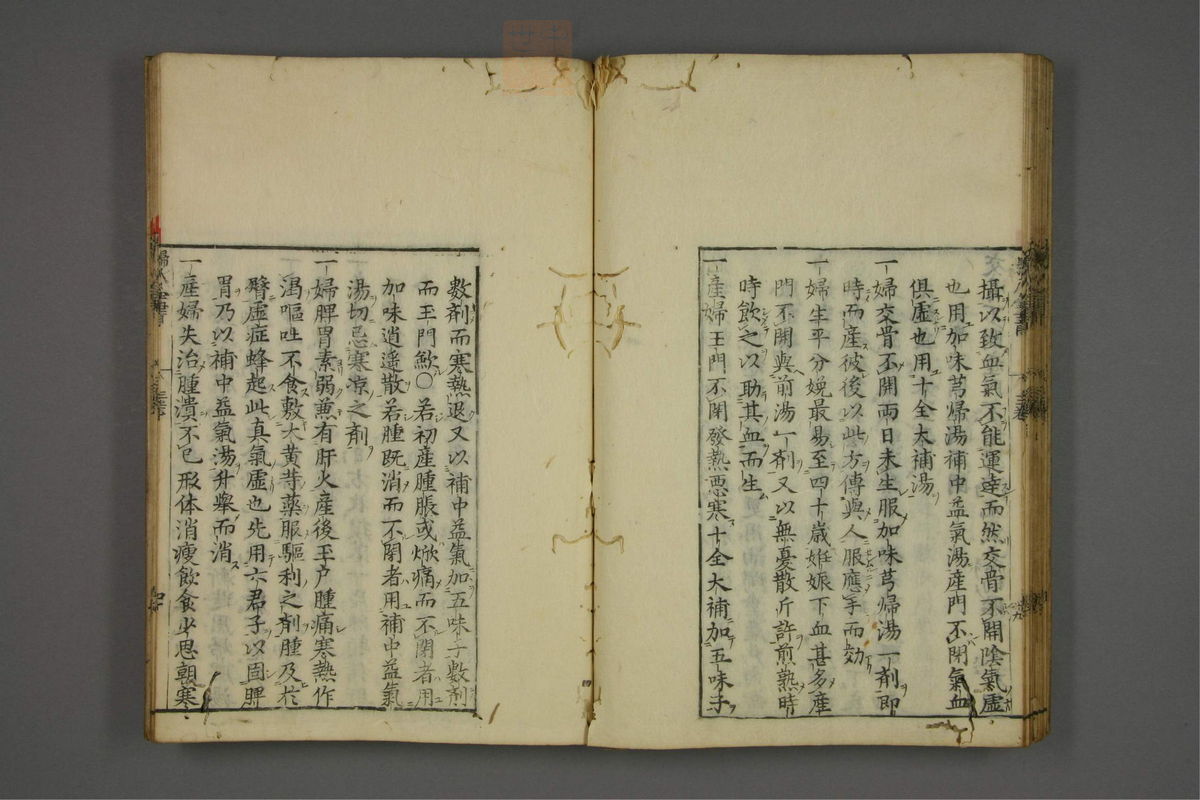 攝以致血氣不能運達而然交骨不開陰氣虛
也用加味芎帰湯補中益氣湯産門不閉氣血
俱虛也用十全大補湯
一婦交骨不開両日未生服加味芎帰湯一剤即
時而産彼後以此方傳與人服應手而効
一婦生平分娩最易至四十歳姙娠下血甚多産
門不開與前湯一剤又以無憂散斤許煎熟時
時飲之以助其血而生
一産婦玉門不閉發熱悪寒十全大補加五味子
数剤而寒熱退又以補中益氣加五味子数剤
而玉門歛○若初産腫脹或焮痛而不閉者用
加味逍遥散若腫既消而不閉者用補中益氣
湯切忌寒凉之剤
一婦脾胃素弱兼有肝火産後玉户腫痛寒熱作
渇嘔吐不食敷大黄等薬服驅利之剤腫及於
臀虛症蜂起此真氣虛也先用六君子以固脾
胃乃以補中益氣湯升舉而消
一産婦失治腫潰不已形体消瘦飲食少思朝寒